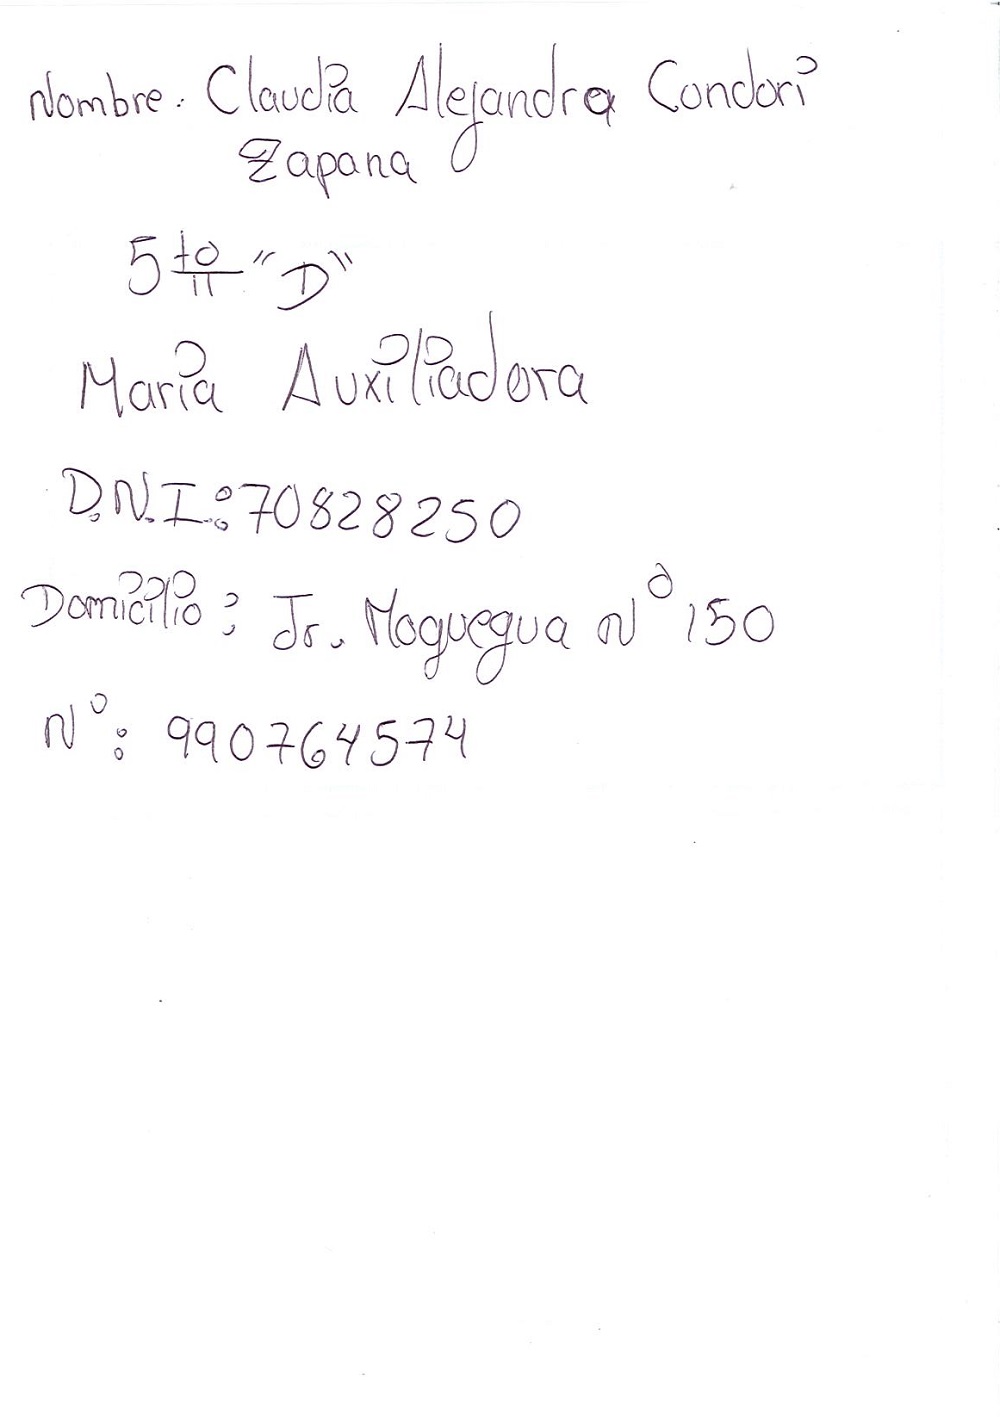 Nombre: Claudia Alejandra Condori
Zapana
5to "D"
Maria Auxiliadora
D.N.I.: 70828250
Domicilio: Jr. Moquegua N° 150
N°: 990764574